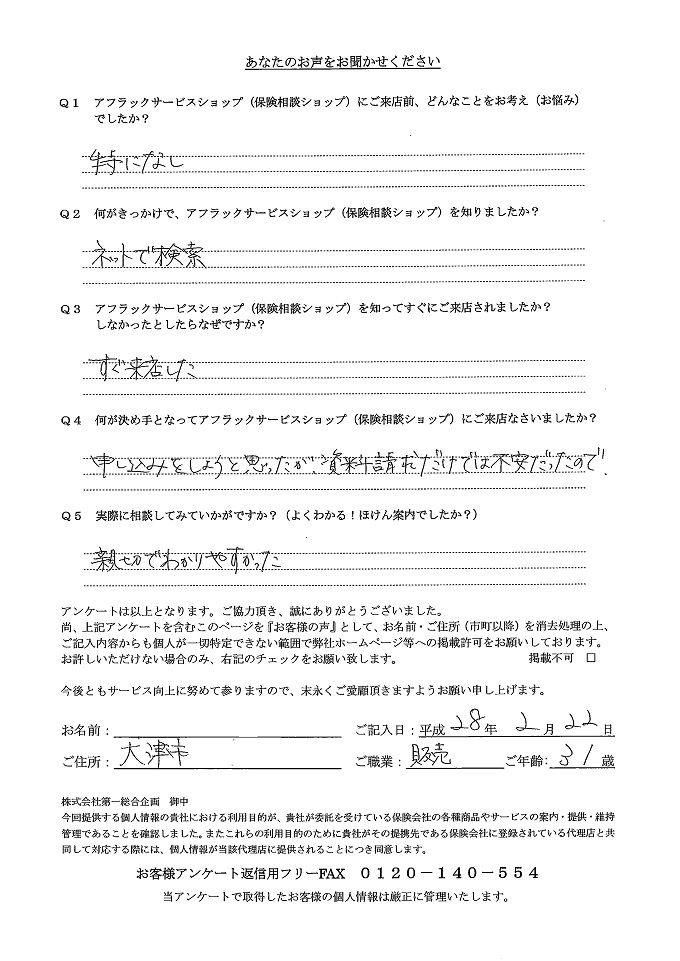 あなたのお声をお聞かせください
Q1 アフラックサービスショップ（保険相談ショップ）にご来店前、どんなことをお考え（お悩み）
でしたか？
特になし
Q2 何がきっかけで、アフラックサービスショップ（保険相談ショップ）を知りましたか？
ネットで検索
Q3 アフラックサービスショップ（保険相談ショップ）を知ってすぐにご来店されましたか？
しなかったとしたらなぜですか？
すぐ来店した
Q4 何が決め手となってアフラックサービスショップ（保険相談ショップ）にご来店なさいましたか？
申し込みをしようと思ったが、資料請求だけでは不安だったので。
Q5 実際に相談してみていかがですか？（よくわかる！ほけん案内でしたか？）
親切でわかりやすかった
アンケートは以上となります。ご協力頂き、誠にありがとうございました。
尚、上記アンケートを含むこのページを『お客様の声』として、お名前・ご住所（市町以降）を消去処理の上、
ご記入内容からも個人が一切特定できない範囲で弊社ホームページ等への掲載許可をお願いしております。
お許しいただけない場合のみ、右記のチェックをお願い致します。 掲載不可 □
今後ともサービス向上に努めて参りますので、末永くご愛顧頂きますようお願い申し上げます。
お名前： ご記入日：平成 28 年 2 月 22 日
ご住所： 大津市 ご職業： 販売 ご年齢： 31 歳
株式会社第一総合企画 御中
今回提供する個人情報の貴社における利用目的が、貴社が委託を受けている保険会社の各種商品やサービスの案内・提供・維持
管理であることを確認しました。またこれらの利用目的のために貴社がその提携先である保険会社に登録されている代理店と共
同して対応する際には、個人情報が当該代理店に提供されることにつき同意します。
お客様アンケート返信用フリーFAX 0120－140－554
当アンケートで取得したお客様の個人情報は厳正に管理いたします。